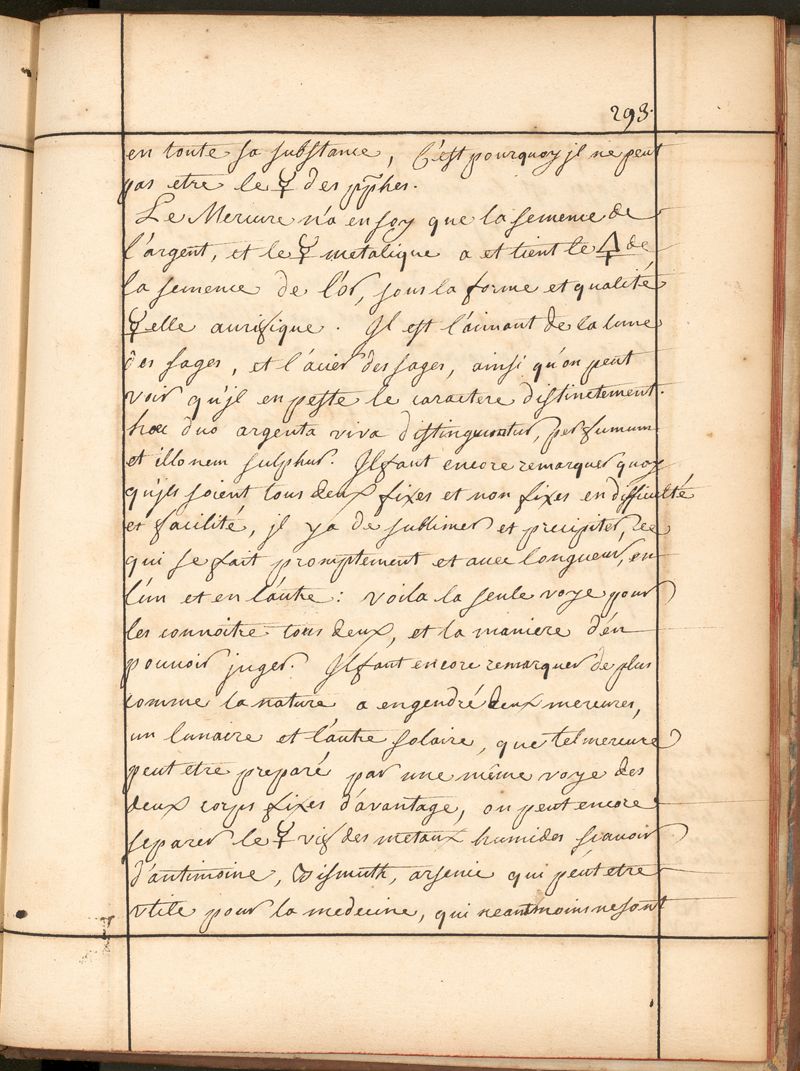 293.
en toute sa substance, C'est pourquoy jl ne peut
pas etre le ☿ des pphes.
Le Mercure n'a en soy que la semence de
l'argent, et le ☿ metalique a et tient le 🜍 de
la semence de l'or, sous la forme et qualité
☿elle aurifique. Jl est l'aimant de la lune
des sages, et l'acier des sages, ainsi qu'on peut
voir qu'jl en peste le caractere distinctement.
hæc duo argenta viva distinguontur, per fumum
et illonem sulphur. Jl faut encore remarquer quoy
qu'jls soient tous deux fixes et non fixes en difficulté
et facilité, jl y a de sublimer et precipiter, ce
qui se fait promptement et avec longueur, en
l'un et en l'autre: voila la seule voye pour
les connoitre tous deux, et la maniere d'en
pouvoir juger. Jl faut encore remarquer de plus
comme la nature a engendré deux mercures,
un lunaire et l'autre solaire, que tel mercure
peut etre preparé par une même voye des
deux corps fixes d'avantage, on peut encore
separer le ☿ vif des metaux humides scavoir
d'antimoine, Bismuth, arsenic qui peut etre
vtile pour la medecine, qui neantmoins ne sont